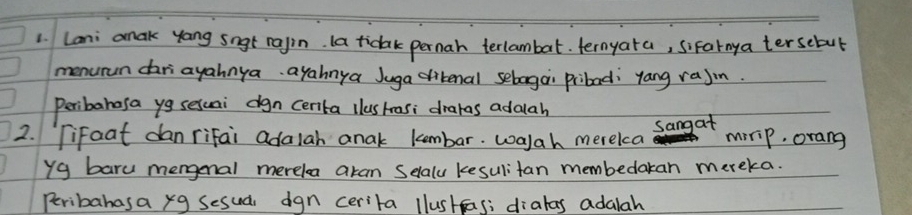 1. Lani anak yang sngt rajin. Ia tidak pernah terlambat. ternyata, sifatnya tersebut
menurun dari ayahnya. ayahnya Juga dikenal sebagai pribadi yang rajin.
Peribahasa yg sesuai dgn cerita ilustrasi diatas adalah
2. Tifaat dan rifai adalah anak kembar. wajah mereka sangat mirip. orang
yg baru mengenal mereka akan selalu kesulitan membedakan mereka.
Peribahasa yg sesuai dgn cerita ilustrasi diatas adalah